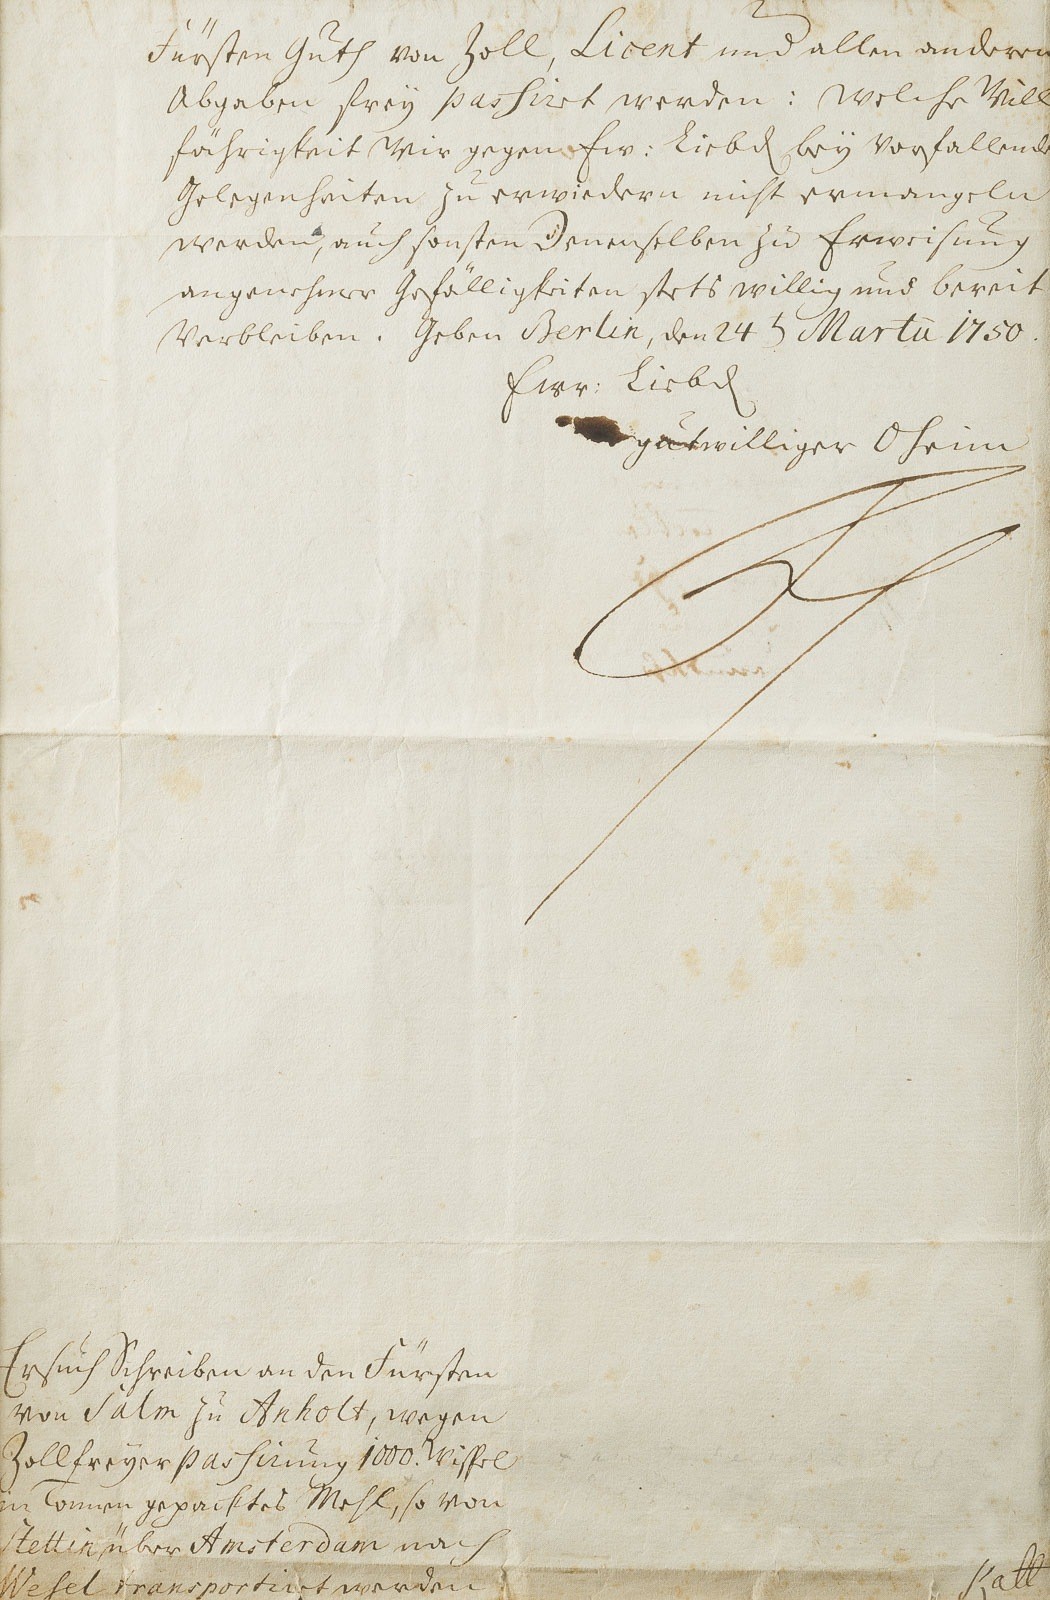 Fürsten Guth von Zoll, Licent und allen anderen
Abgaben frey passiret werden: Welche Will
fährigkeit Wir gegen Ew: Liebd bey Vorfallende
Gelegenheiten zu erwiedern nicht ermangeln
werden, auch sonsten Denenselben zu Erweisung
angenehmer Gefälligkeiten stets willig und bereit
Verbleiben. Geben Berlin, den 24 t Martii 1750.
Ewr: Liebd
gutwilliger Oheim
Ersuch Schreiben an den Fürsten
von Salm zu Anholt, wegen
Zollfreyer passirung 1000. Wispel
in Tonnen gepacktes Mehl, so von
Stettin über Amsterdam nach
Wesel transportiret werden
Katt